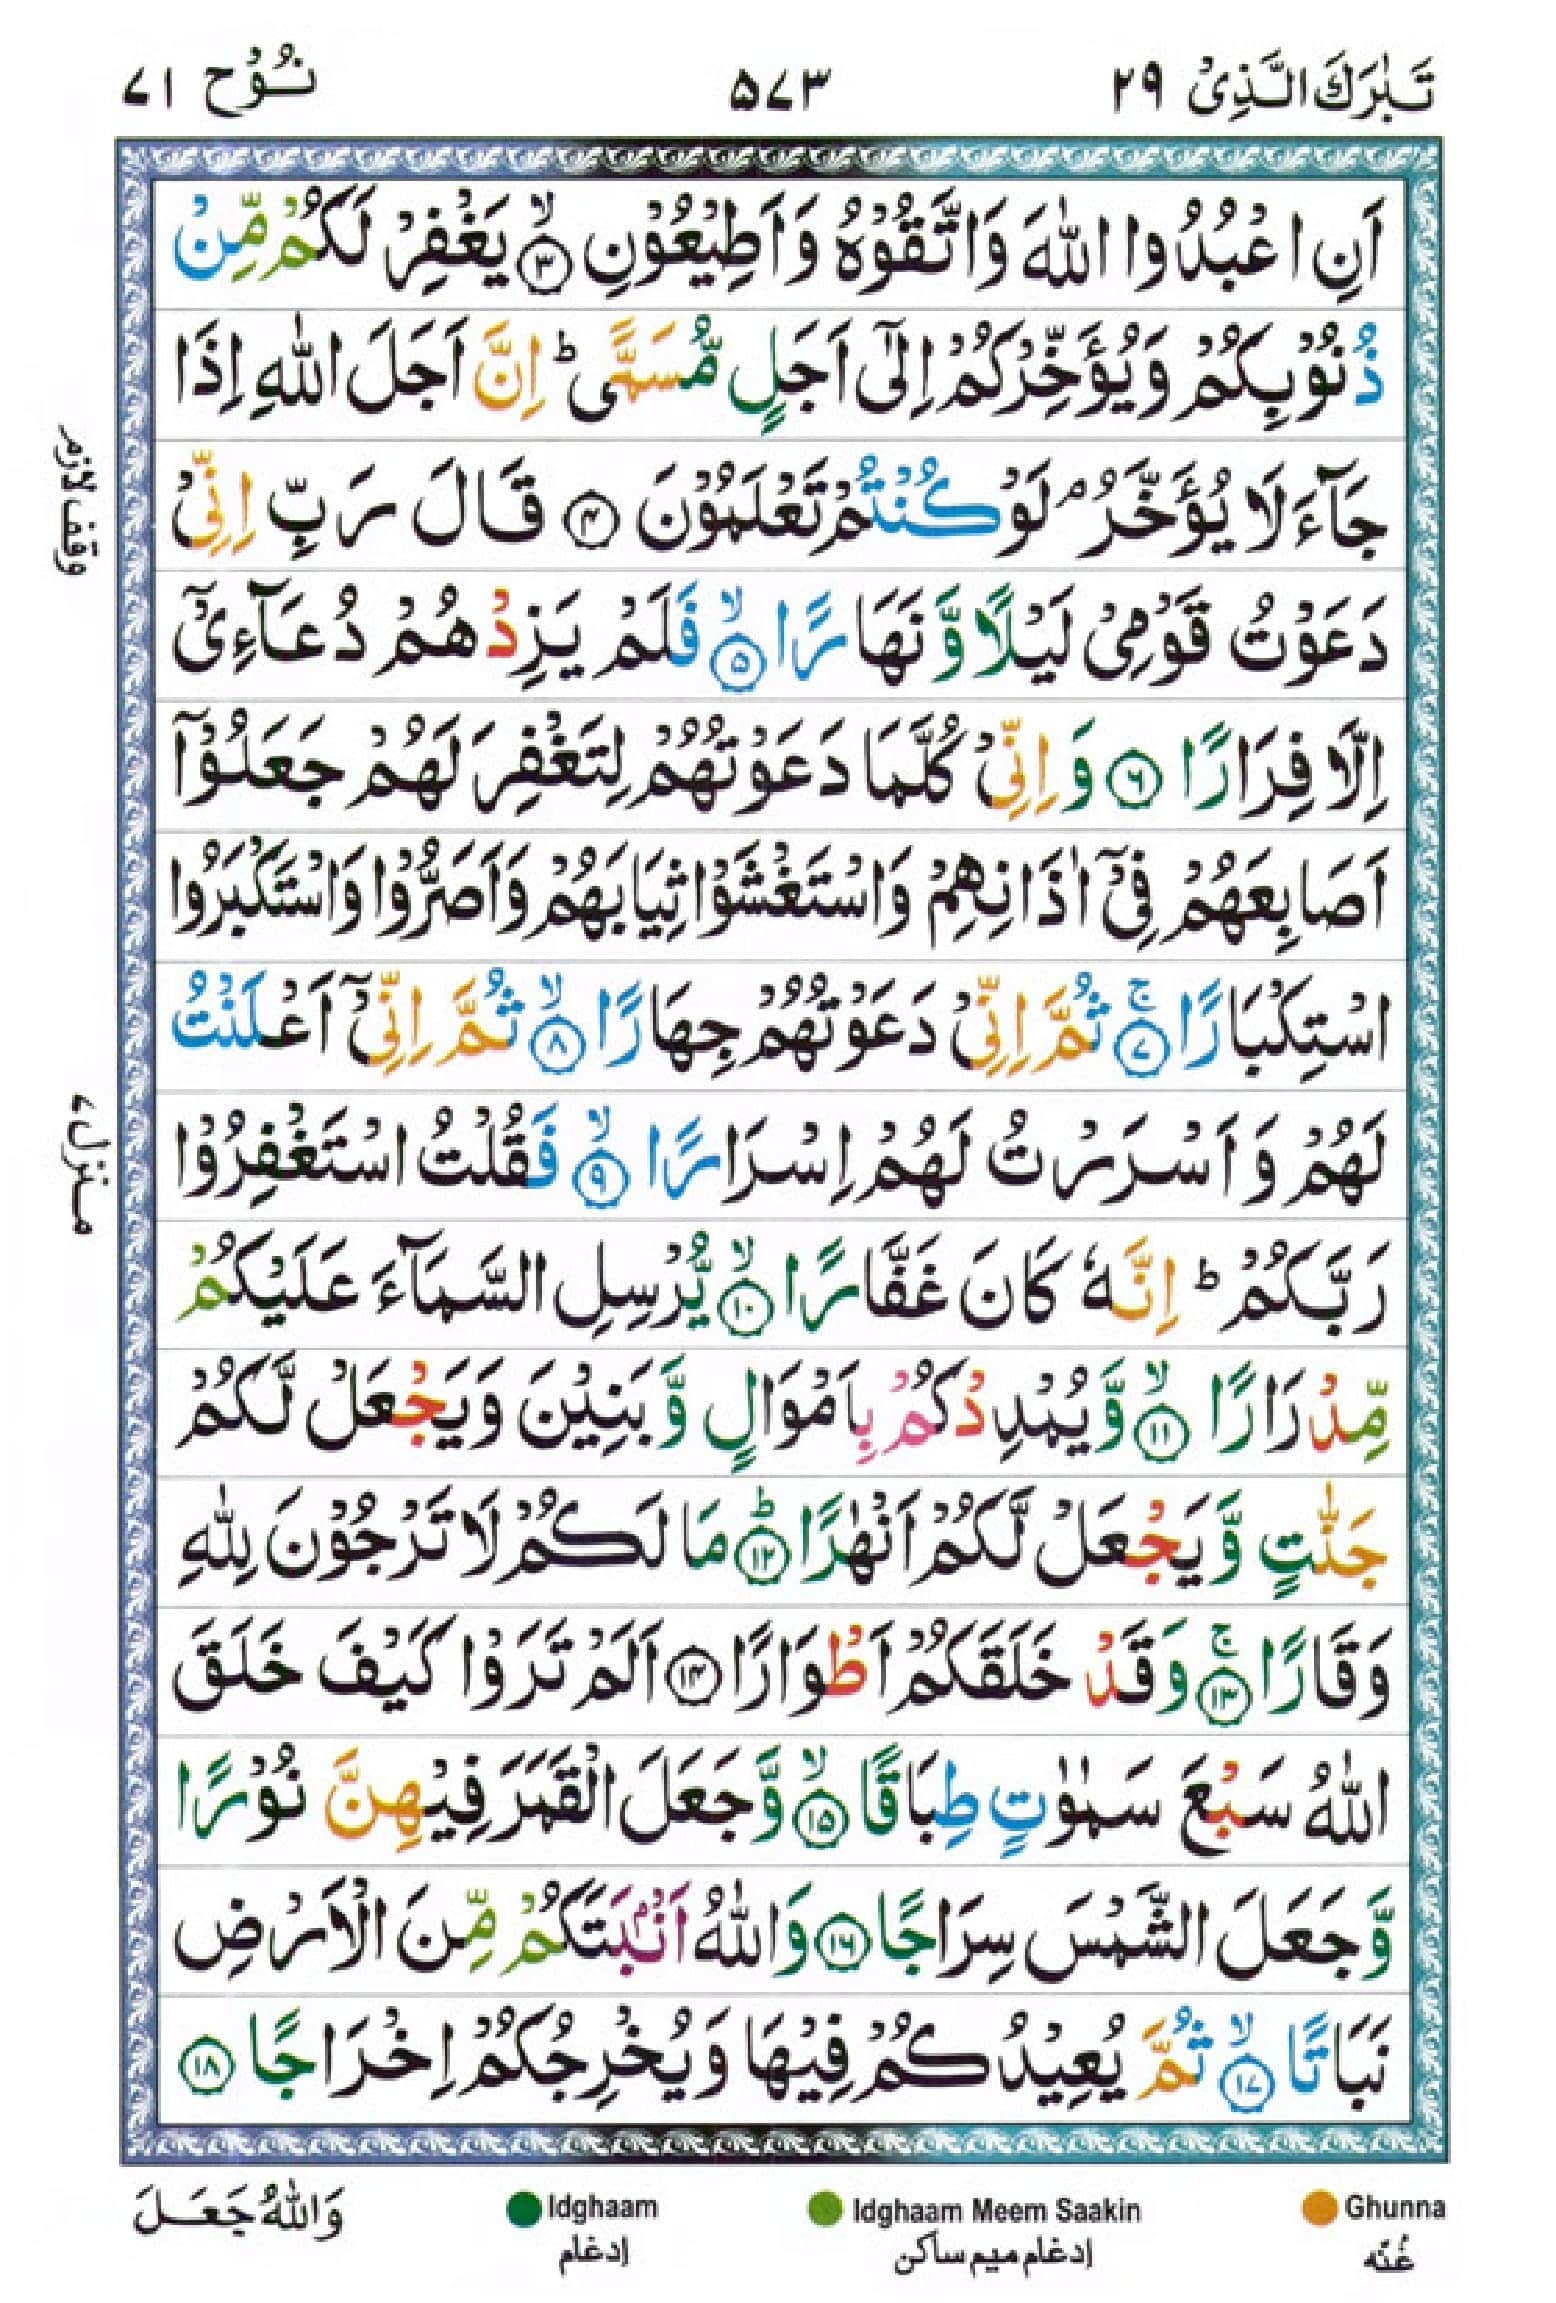 تَبٰرَكَ الَّذِیْ ۲۹
۵۷۳
نُوْح ۷۱
اَنِ اعْبُدُوا اللّٰهَ وَاتَّقُوْهُ وَاَطِیْعُوْنِ ۙ﴿۳﴾ یَغْفِرْ لَكُمْ مِّنْ
ذُنُوْبِكُمْ وَیُؤَخِّرْكُمْ اِلٰۤی اَجَلٍ مُّسَمًّی ؕ اِنَّ اَجَلَ اللّٰهِ اِذَا
جَآءَ لَا یُؤَخَّرُ ۘ لَوْ كُنْتُمْ تَعْلَمُوْنَ ﴿۴﴾ قَالَ رَبِّ اِنِّیْ
دَعَوْتُ قَوْمِیْ لَیْلًا وَّ نَهَارًا ۙ﴿۵﴾ فَلَمْ یَزِدْهُمْ دُعَآءِیْۤ
اِلَّا فِرَارًا ﴿۶﴾ وَ اِنِّیْ كُلَّمَا دَعَوْتُهُمْ لِتَغْفِرَ لَهُمْ جَعَلُوْۤا
اَصَابِعَهُمْ فِیْۤ اٰذَانِهِمْ وَاسْتَغْشَوْا ثِیَابَهُمْ وَاَصَرُّوْا وَاسْتَكْبَرُوا
اسْتِكْبَارًا ۚ﴿۷﴾ ثُمَّ اِنِّیْ دَعَوْتُهُمْ جِهَارًا ۙ﴿۸﴾ ثُمَّ اِنِّیْۤ اَعْلَنْتُ
لَهُمْ وَ اَسْرَرْتُ لَهُمْ اِسْرَارًا ۙ﴿۹﴾ فَقُلْتُ اسْتَغْفِرُوْا
رَبَّكُمْ ؕ اِنَّهٗ كَانَ غَفَّارًا ۙ﴿۱۰﴾ یُّرْسِلِ السَّمَآءَ عَلَیْكُمْ
مِّدْرَارًا ۙ﴿۱۱﴾ وَّ یُمْدِدْكُمْ بِاَمْوَالٍ وَّ بَنِیْنَ وَیَجْعَلْ لَّكُمْ
جَنّٰتٍ وَّ یَجْعَلْ لَّكُمْ اَنْهٰرًا ؕ﴿۱۲﴾ مَا لَكُمْ لَا تَرْجُوْنَ لِلّٰهِ
وَقَارًا ۚ﴿۱۳﴾ وَقَدْ خَلَقَكُمْ اَطْوَارًا ﴿۱۴﴾ اَلَمْ تَرَوْا كَیْفَ خَلَقَ
اللّٰهُ سَبْعَ سَمٰوٰتٍ طِبَاقًا ۙ﴿۱۵﴾ وَّ جَعَلَ الْقَمَرَ فِیْهِنَّ نُوْرًا
وَّ جَعَلَ الشَّمْسَ سِرَاجًا ﴿۱۶﴾ وَاللّٰهُ اَنْۢبَتَكُمْ مِّنَ الْاَرْضِ
نَبَاتًا ۙ﴿۱۷﴾ ثُمَّ یُعِیْدُكُمْ فِیْهَا وَیُخْرِجُكُمْ اِخْرَاجًا ﴿۱۸﴾
وقف لازم
منزل ۷
Ghunna
غُنّه
Idghaam Meem Saakin
إدغام ميم ساكن
Idghaam
إدغام
وَاللّٰهُ جَعَلَ